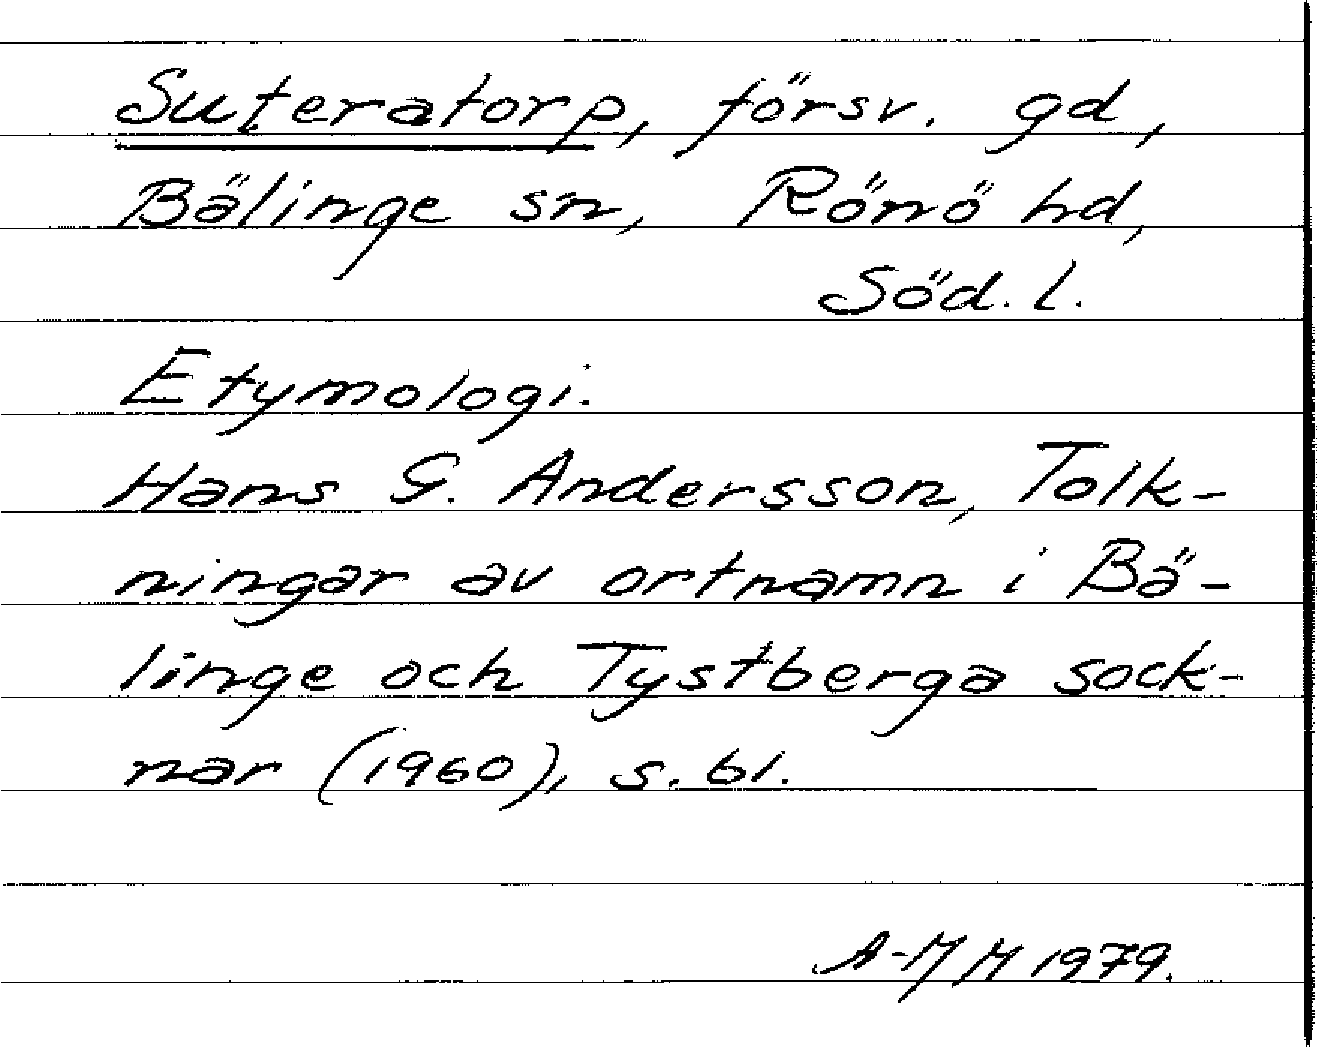 Suteratorp, försv. gd,
Bälinge sn, Rönö hd,
Söd. l.
Etymologi.
Hans G. Andersson, Tolk-
ningar av ortnamn i Bä-
linge och Tystberga sock-
nar (1960), s. 61.
A-M H 1979.